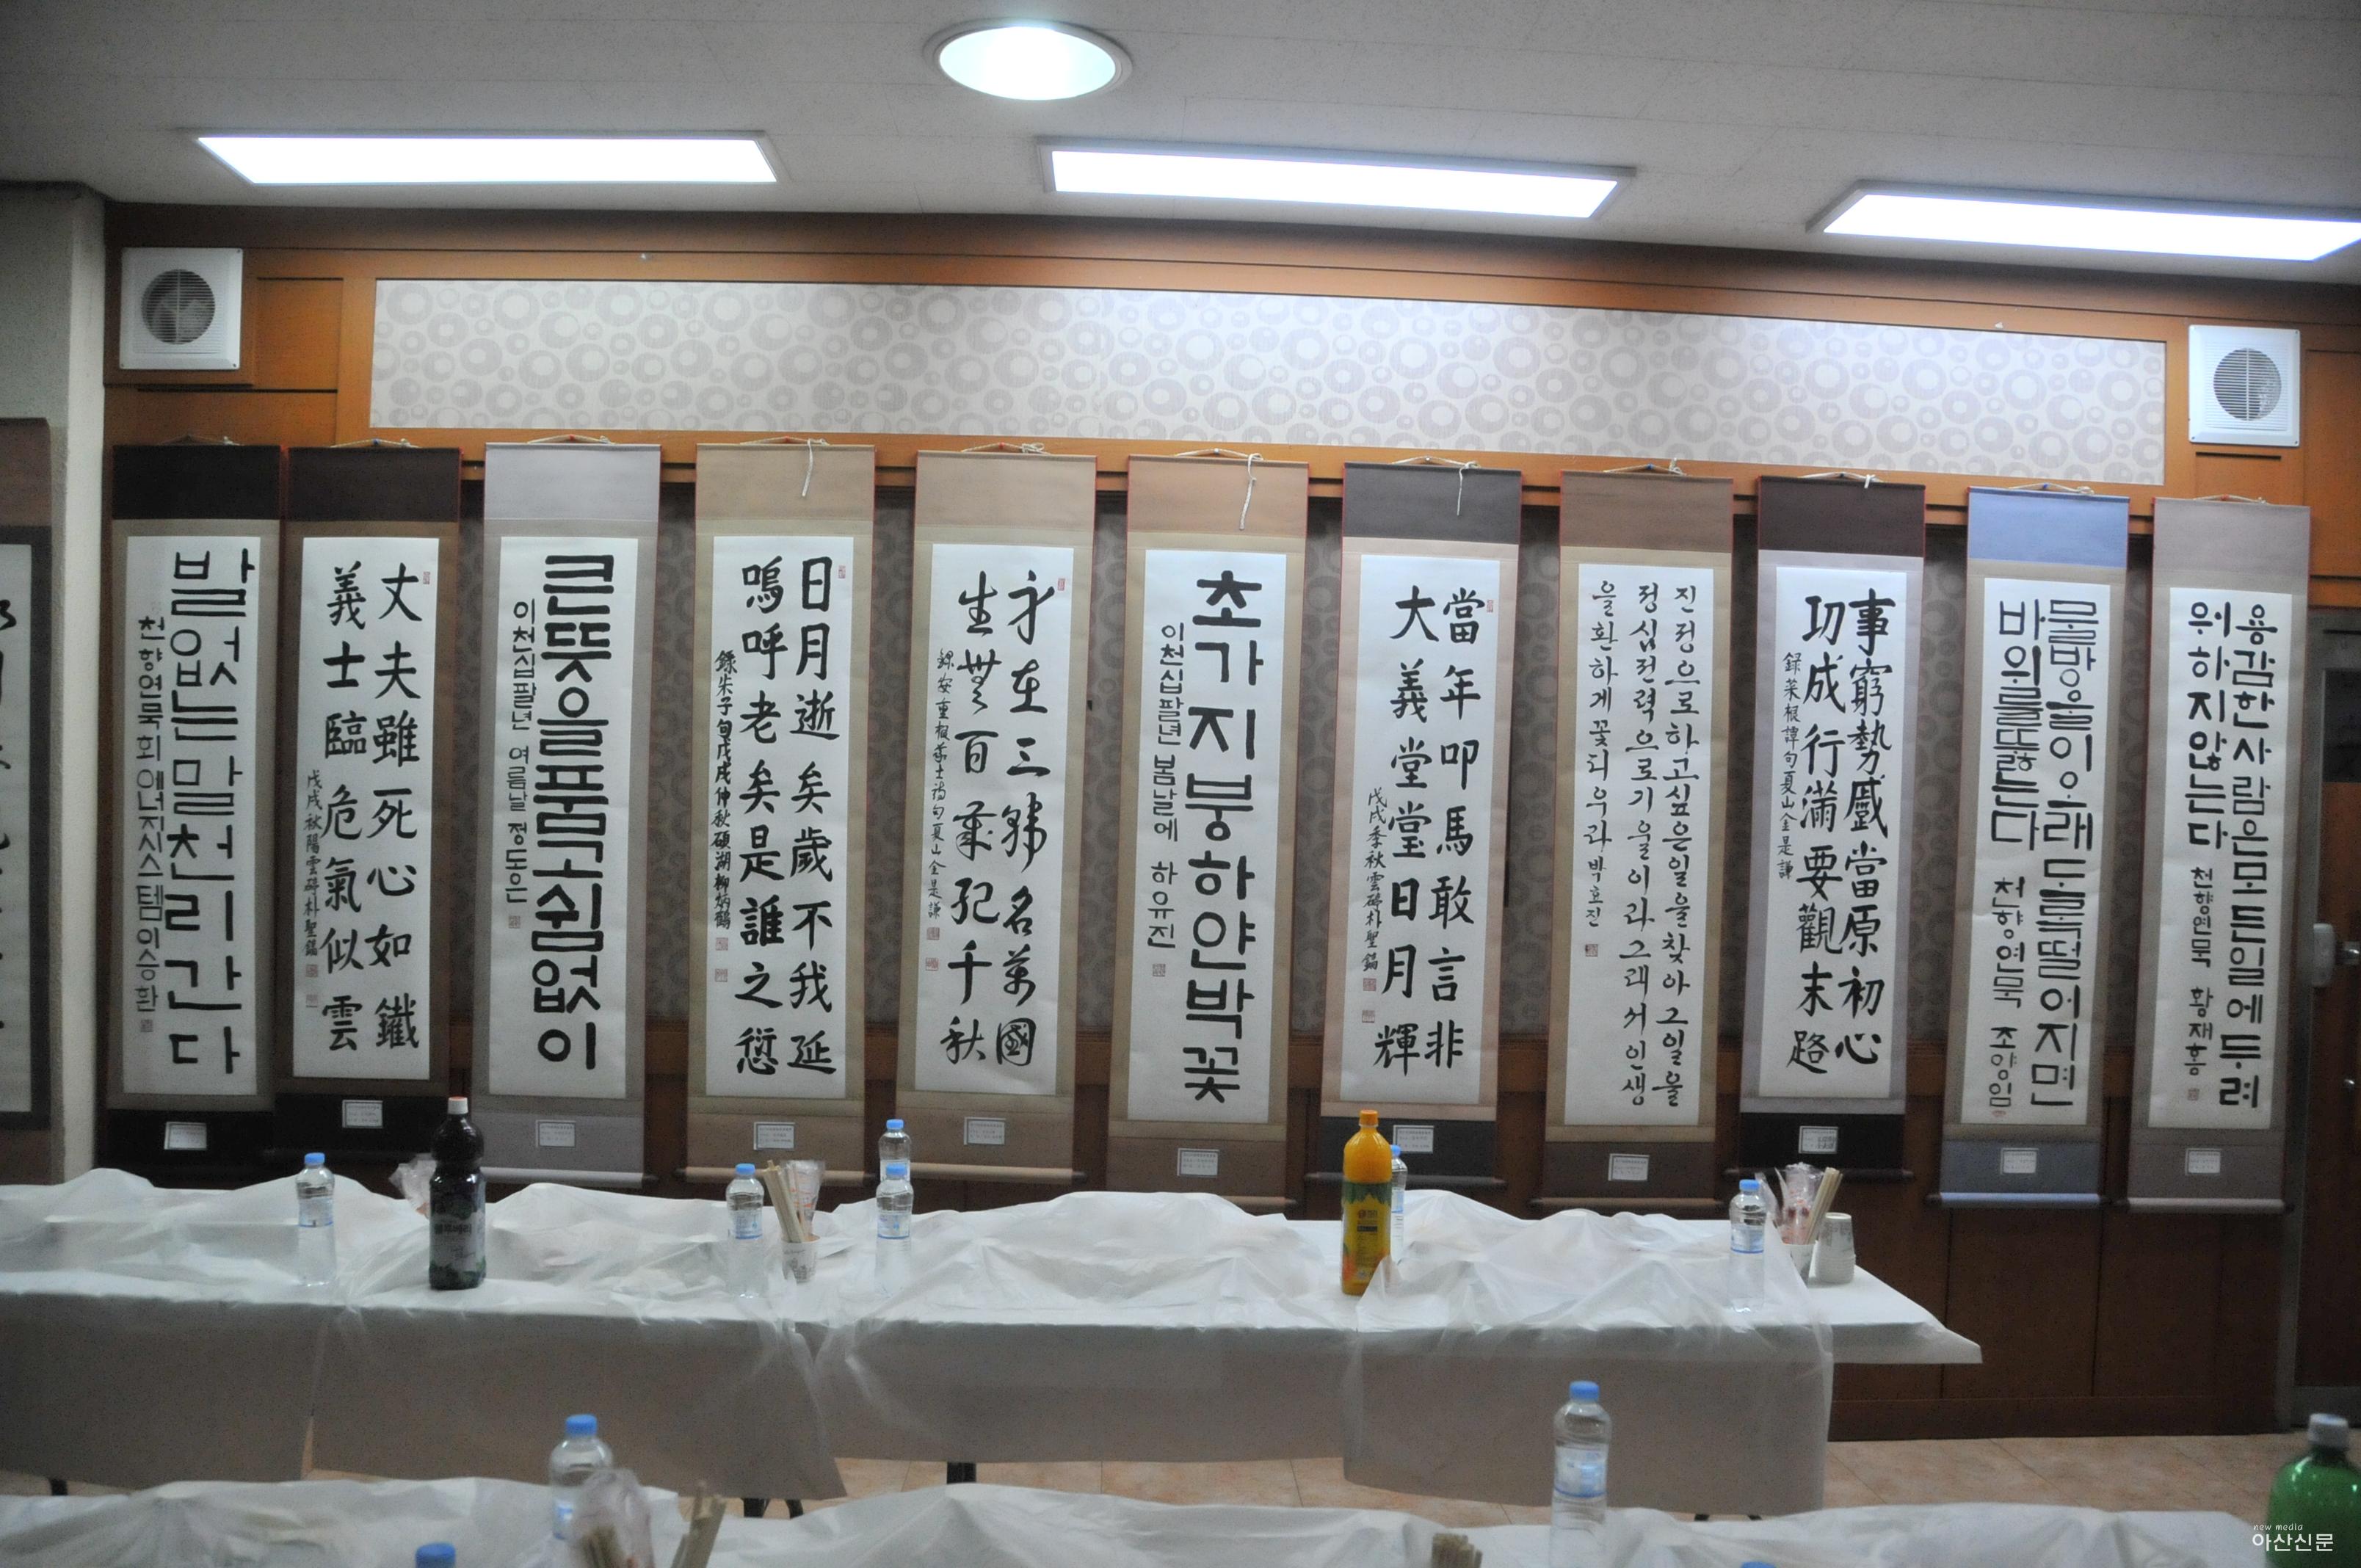 발 없는 말 천리 간다
천향연묵회 에너지시스템 임승환
丈夫雖死心如鐵
義士臨危氣似雲
戊戌秋陽雲硏朴聖鎬
큰 뜻을 품고 쉼 없이
이천십팔년 여름날 정도은
日月逝矣歲不我延
嗚呼老矣是誰之愆
錄朱子句戊戌仲秋碩湖柳炳鶴
身在三韓名萬國
生無百歲死千秋
초가지붕 하얀 박꽃
이천십팔년 봄날에 하유진
當年叩馬敢言非
大義堂堂日月輝
진정으로 하고싶은 일을 찾아 그 일을
정심전력으로 기울이라 그래서 인생
을 환하게 꽃 피우라 박효진
事窮勢蹙當原初心
功成行滿要觀末路
錄菜根譚句夏山金是謙
물방울이 오래도록 떨어지면
바위를 뚫는다
천향연묵 조양임
용감한 사람은 모든 일에 두려
워하지 않는다
천향연묵 황재홍
new media
아산신문